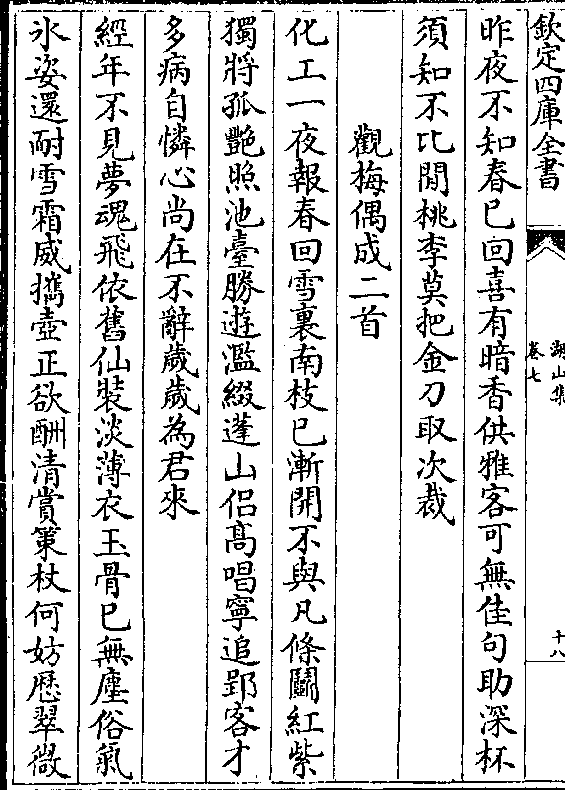 欽定四庫全書
湖山集
卷七
十八
昨夜不知春已回喜有暗香供雅客可無佳句助深杯
須知不比閒桃李莫把金刀取次裁
觀梅偶成二首
化工一夜報春回雪裏南枝已漸開不與凡條鬭紅紫
獨將孤艷照池臺勝遊濫綴蓬山侣髙唱寧追郢客才
多病自憐心尚在不辭歲歲為君來
經年不見夢魂飛依舊仙裝淡薄衣玉骨已無塵俗氣
氷姿還耐雪霜威攜壺正欲酬清賞䇿杖何妨歴翠微